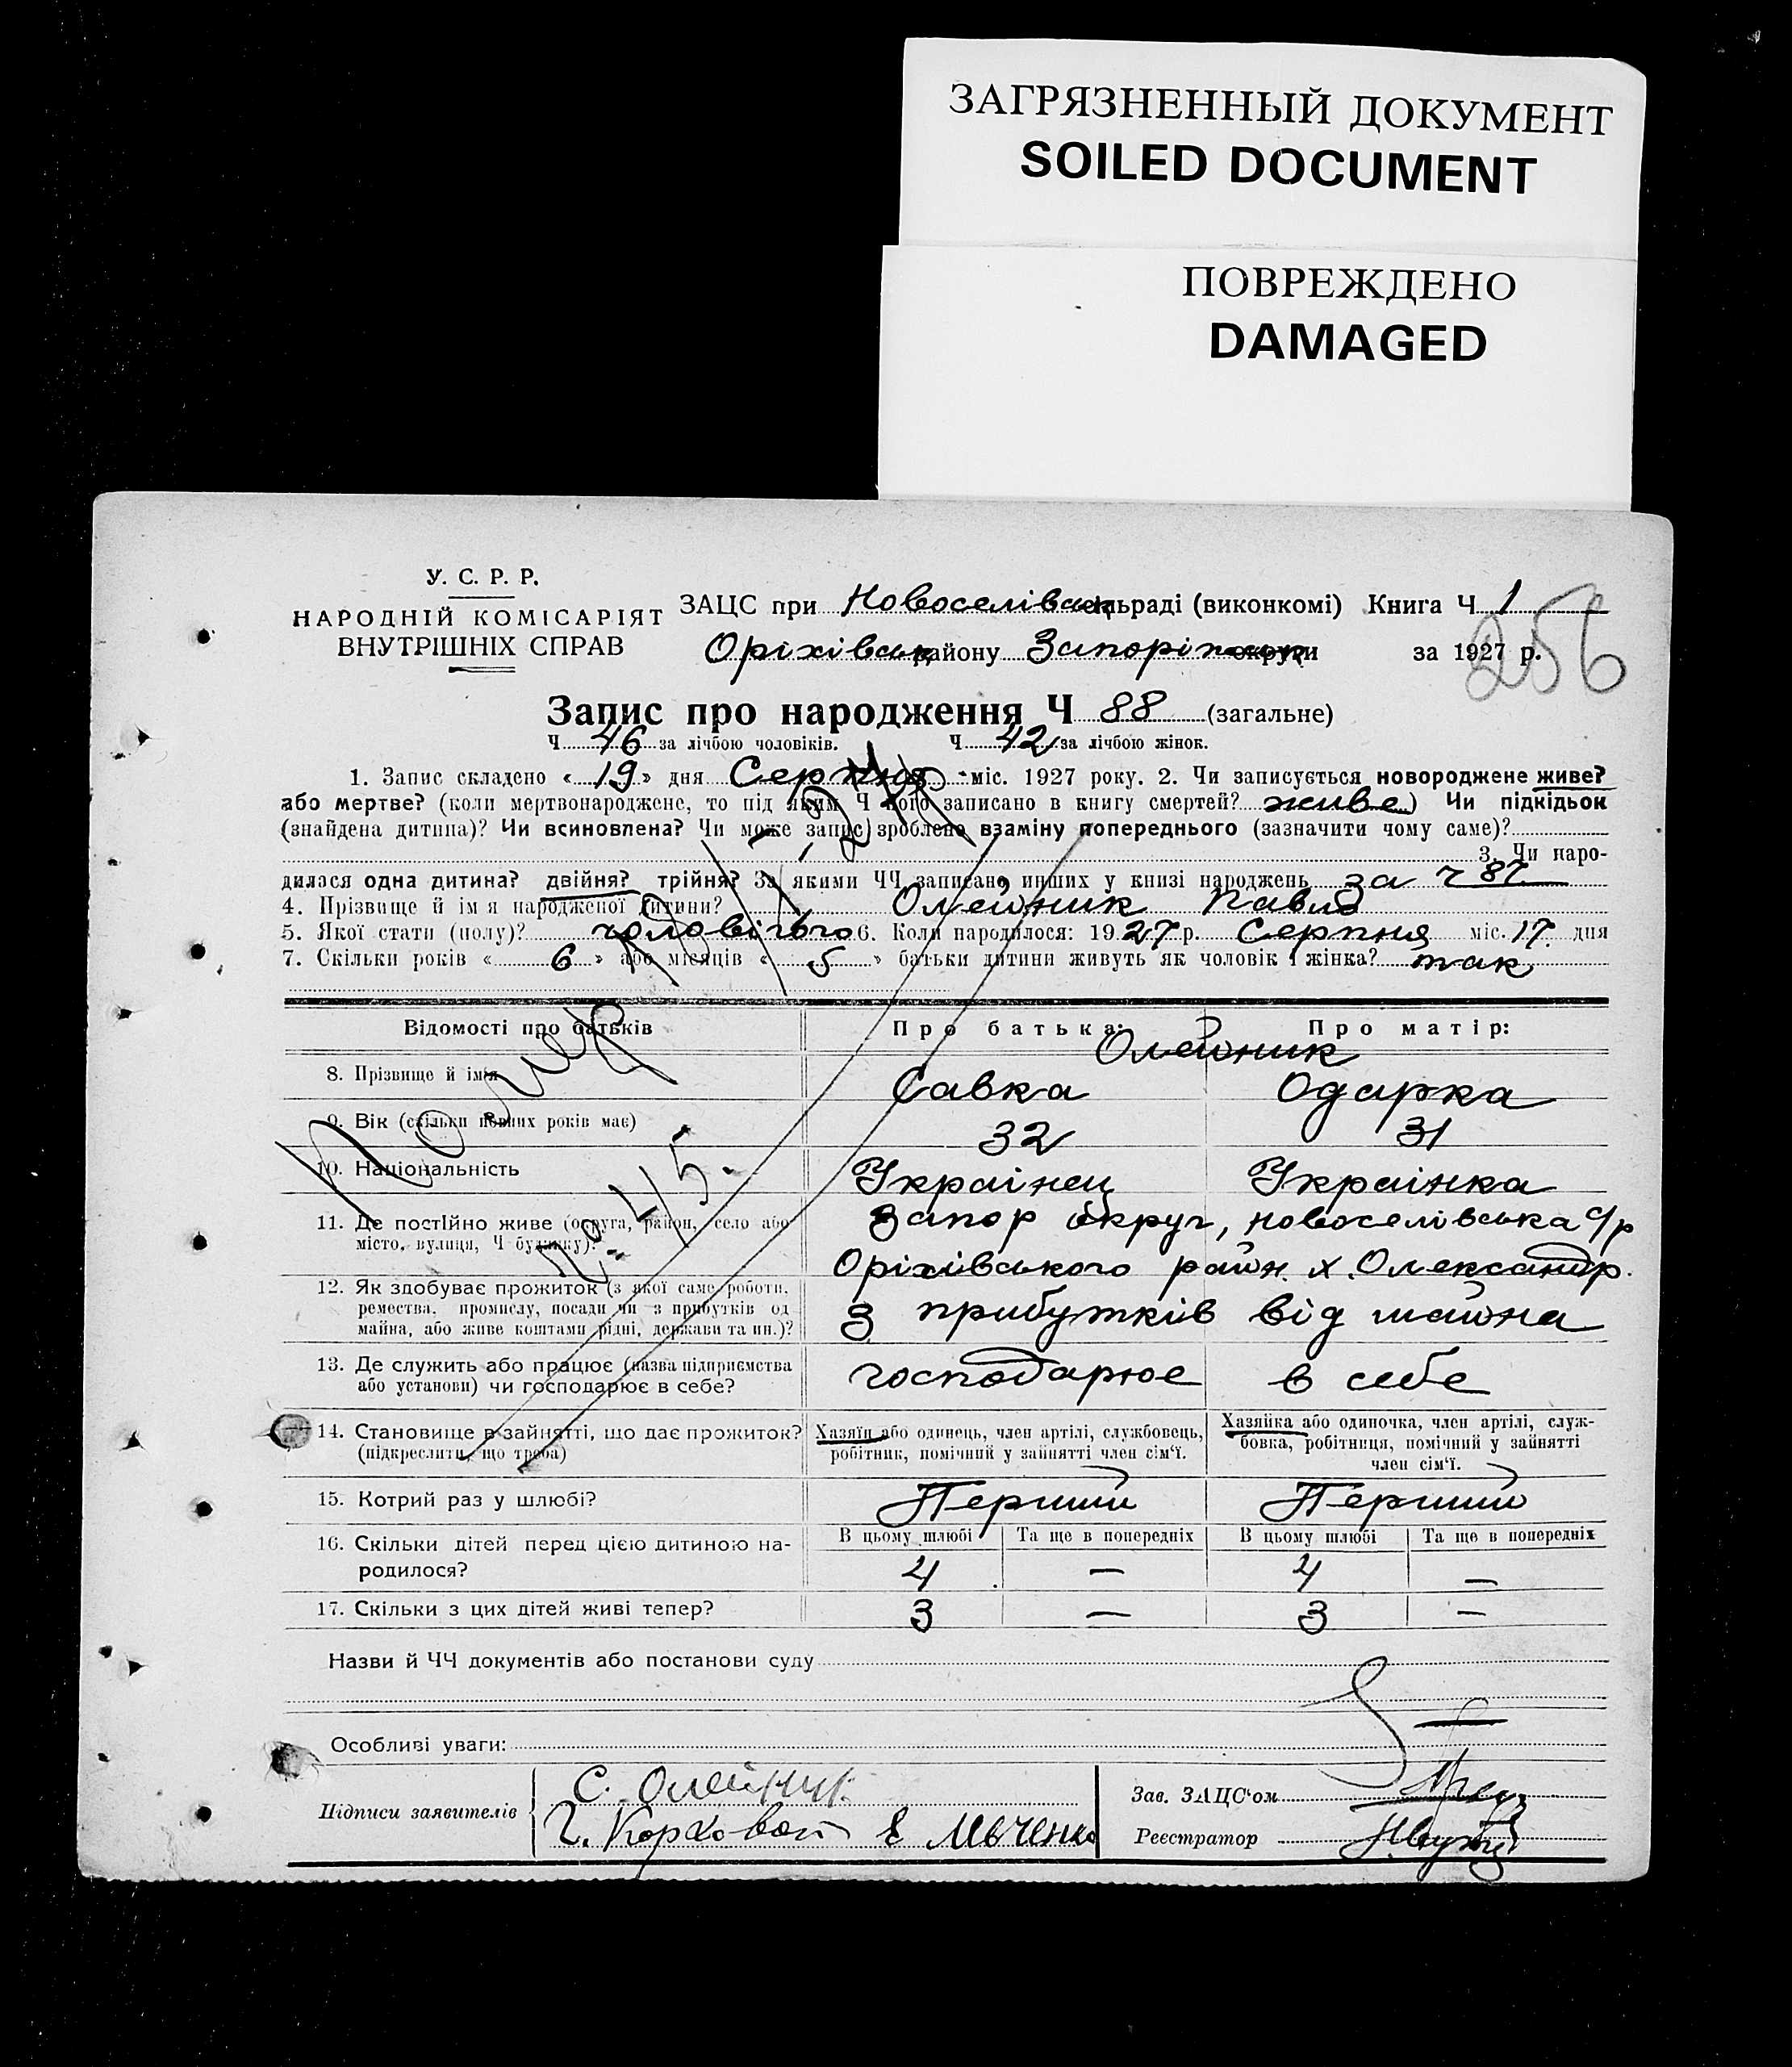 ЗАГРЯЗНЕННЫЙ ДОКУМЕНТ
SOILED DOCUMENT
ПОВРЕЖДЕНО
DAMAGED
У. С. Р. Р.
НАРОДНІЙ КОМІСАРІЯТ
ВНУТРІШНІХ СПРАВ
ЗАЦС при Новоселівськ сельраді (виконкомі) Книга Ч 1
Оріхівськ району Запоріжськ округи за 1927 р.
256
Запис про народження Ч 88 (загальне)
Ч 46 за лічбою чоловіків. Ч 42 за лічбою жінок.
1. Запис складено « 19 » дня Серпня міс. 1927 року. 2. Чи записується новороджене живе?
або мертве? (коли мертвонароджене, то під яким Ч його записано в книгу смертей? живе) Чи підкідьок
(знайдена дитина)? Чи всиновлена? Чи може запис зроблено взаміну попереднього (зазначити чому саме)?
3. Чи наро-
дилася одна дитина? двійня? трійня? За якими ЧЧ записано инших у книзі народжень за ч 87
4. Прізвище й ім я народженої дитини? Олейник Павло
5. Якої стати (полу)? чоловічого 6. Коли народилося: 1927 р. Серпня міс. 17 дня
7. Скільки років « 6 » або місяців « 5 » батьки дитини живуть як чоловік і жінка? так
Відомості про батьків Про батька: Про матір:
Олейник
8. Прізвище й ім'я Савка Одарка
9. Вік (скільки повних років має) 32 31
10. Національність Украінец Украінка
11. Де постійно живе (округа, район, село або Запор округ, новоселівська с/р
місто, вулиця, Ч будинку)? Оріхівського район. х. Олександр.
12. Як здобуває прожиток (з якої саме роботи,
ремества, промислу, посади чи з прибутків од З прибутків від майна
майна, або живе коштами рідні, держави та ин.)?
13. Де служить або працює (назва підприємства господарює в себе
або установи) чи господарює в себе?
14. Становище в зайнятті, що дає прожиток? Хазяїн або одинець, член артілі, службовець, Хазяйка або одиночка, член артілі, служ-
(підкреслити, що треба) робітник, помічний у зайнятті член сім'ї. бовка, робітниця, помічний у зайнятті
член сім'ї.
15. Котрий раз у шлюбі? Перший Перший
16. Скільки дітей перед цією дитиною на- В цьому шлюбі Та ще в попередніх В цьому шлюбі Та ще в попередніх
родилося? 4 — 4 —
17. Скільки з цих дітей живі тепер? 3 — 3 —
Помер
№ 45.
Назви й ЧЧ документів або постанови суду
Особливі уваги:
Підписи заявителів С. Олейник Зав. ЗАЦС'ом
Реєстратор